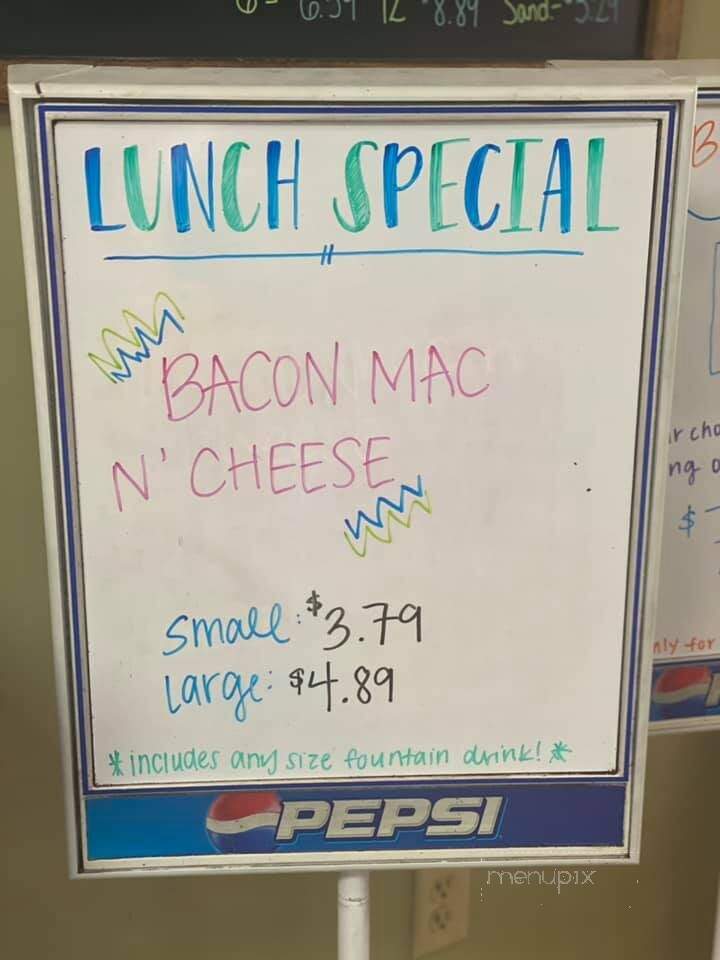 6" 6.59 12" 8.89 Sand- 5.29
LUNCH SPECIAL
BACON MAC
N' CHEESE
small: $3.79
Large: $4.89
*includes any size fountain drink!*
PEPSI
menupix
B
ng
$
nly for